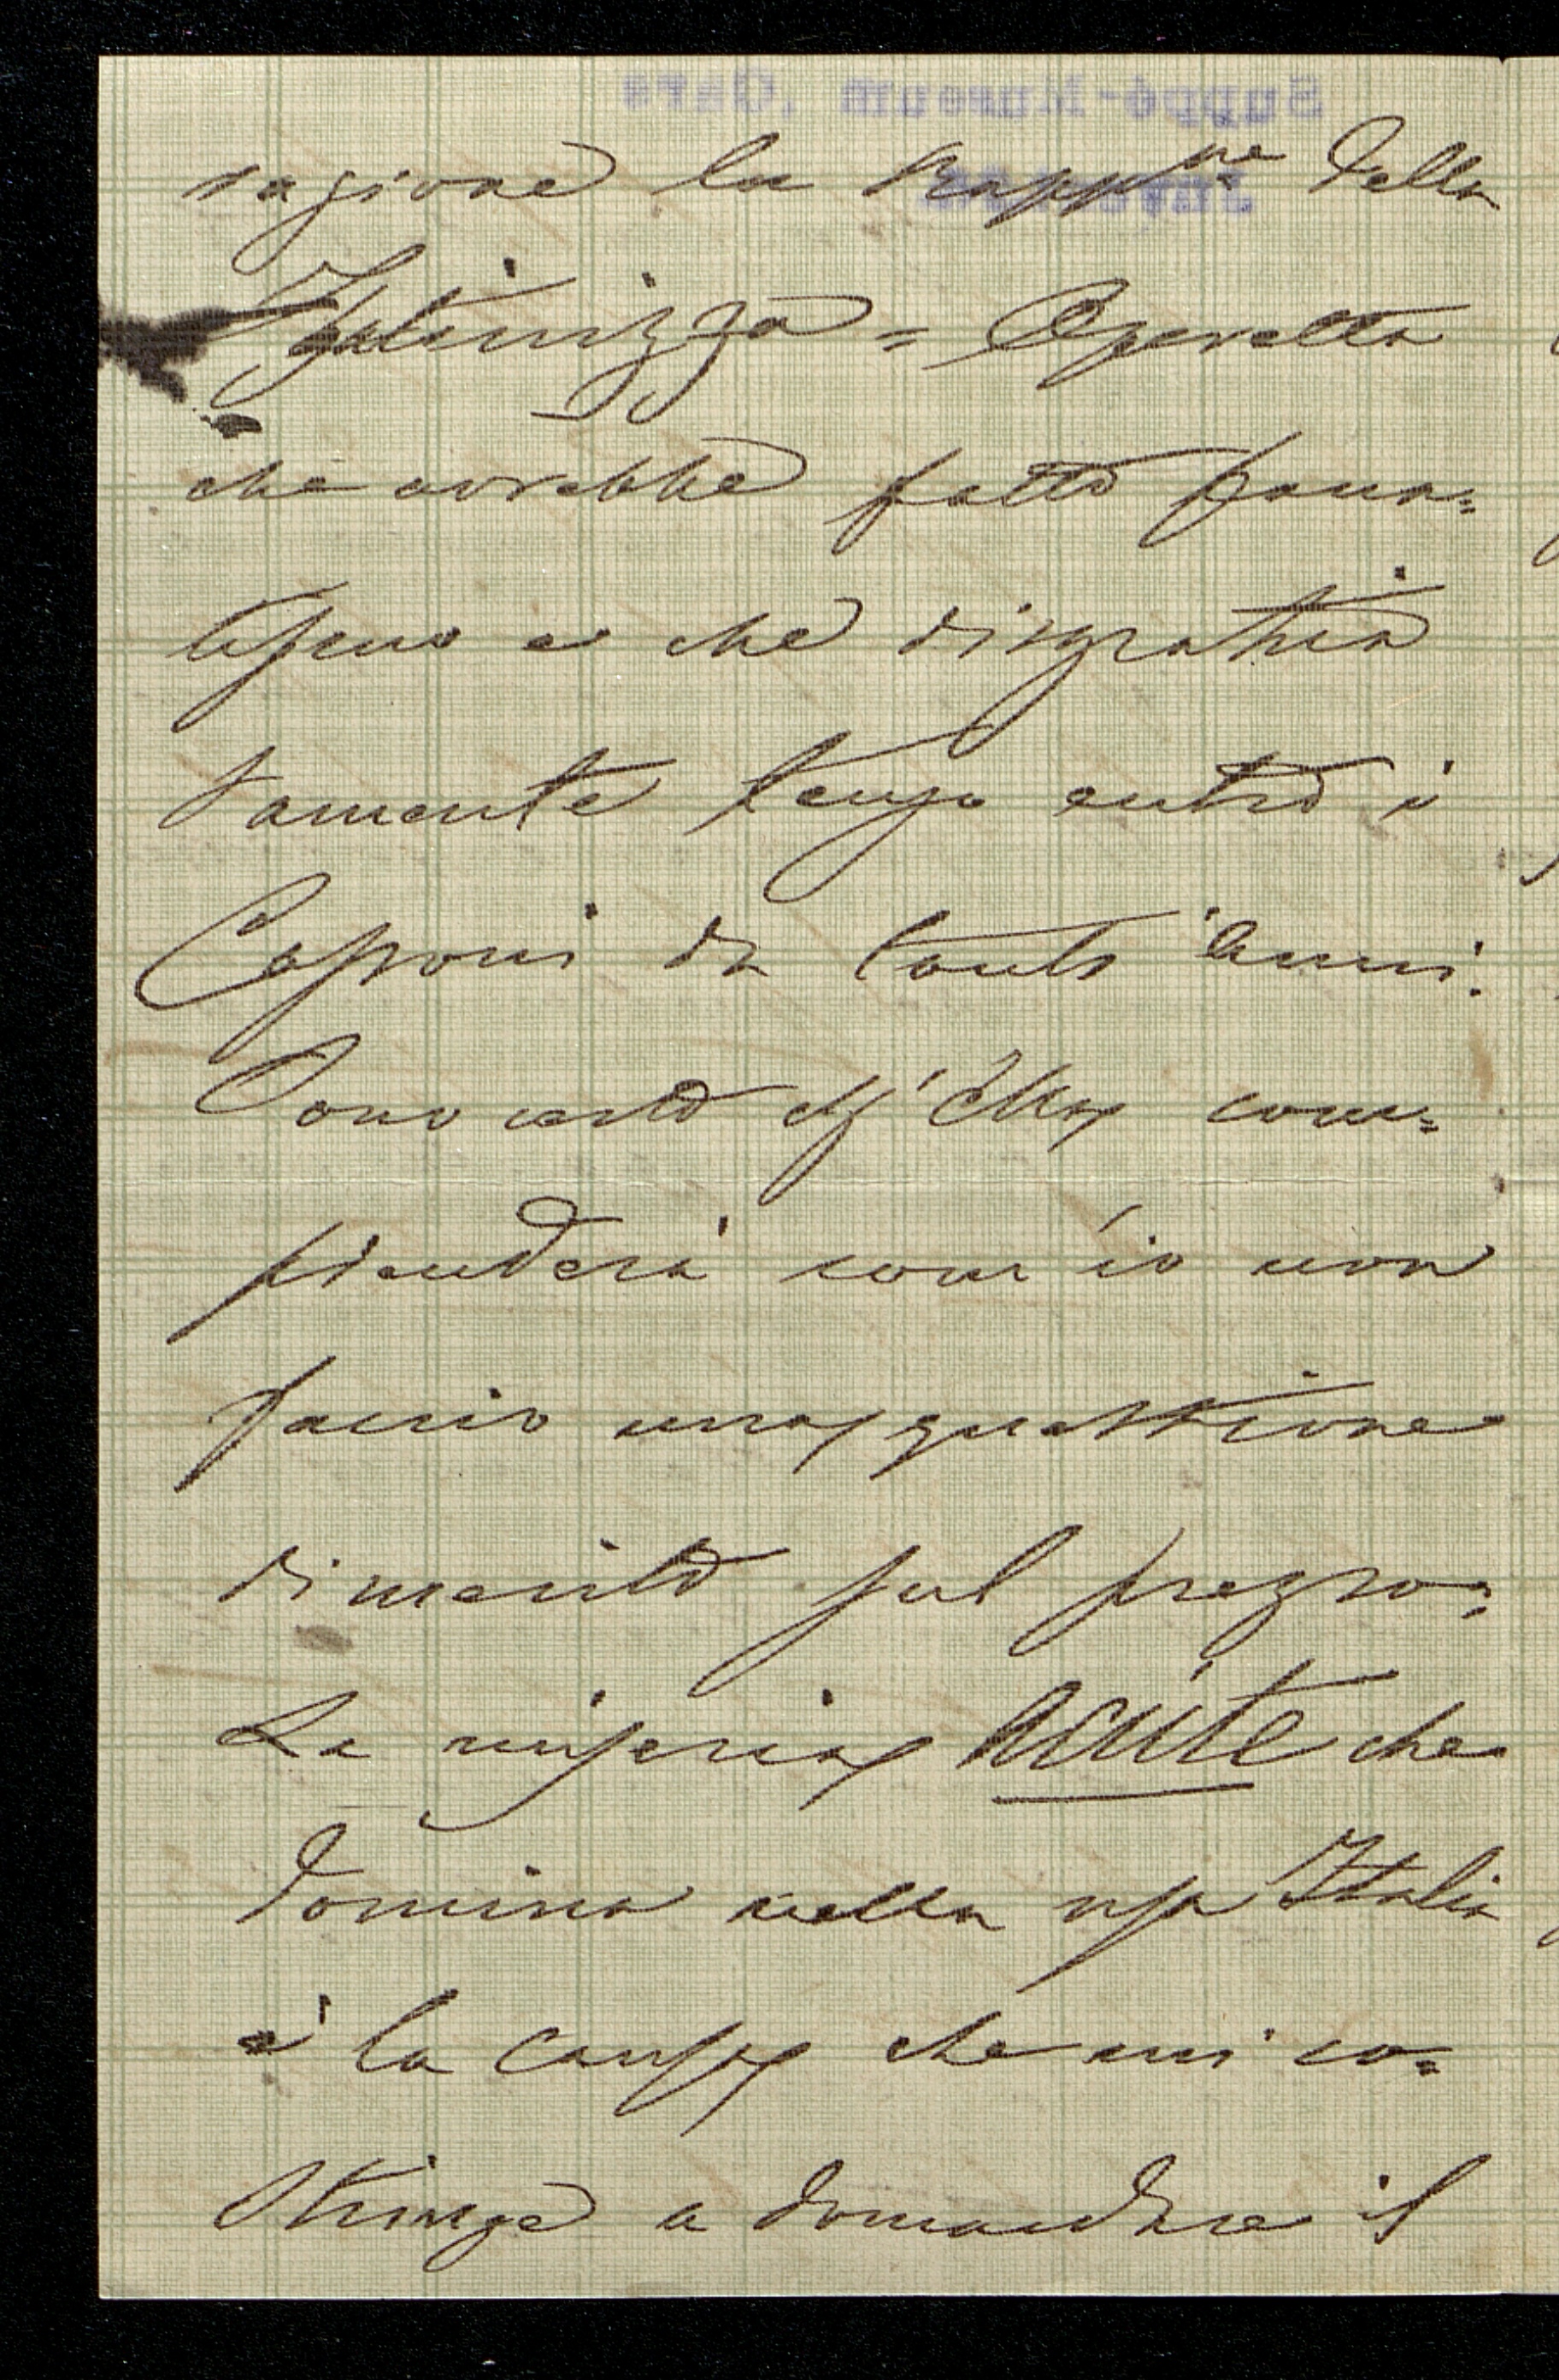 ragione la Rapp.ne della
Fatinizza = Operetta
che avrebbe fatto
e che disgratia
tamente tengo entro i
Cassoni da tanti anni.
Sono certo ch'Ella com=
prenderà com'io non
faccio una questione
di merito sul prezzo;
La miseria acute che
domina nella nsa Italia
è la causa che mi co=
stringe a domandare il